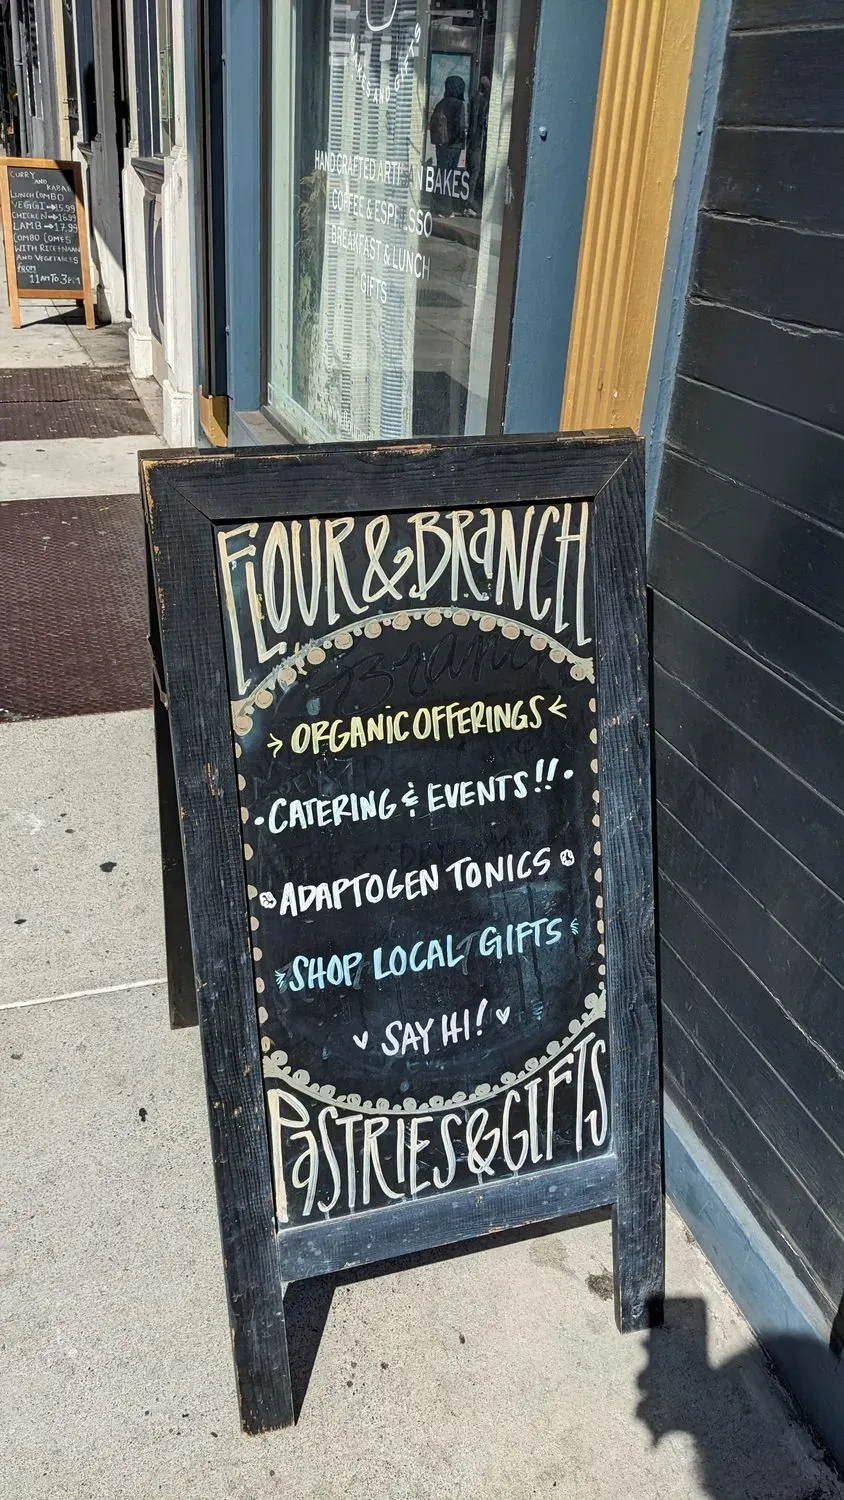 CURRY
AND
KABAB
LUNCH COMBO
VEGGI→15.99
CHICKEN→16.99
LAMB→17.99
COMBO COMES
WITH RICE+NAAN
AND VEGETABLES
FROM
11AM TO 3PM
BAKES AND GIFTS
HANDCRAFTED ARTISAN BAKES
COFFEE & ESPRESSO
BREAKFAST & LUNCH
GIFTS
FLOUR & BRANCH
Branch
> ORGANIC OFFERINGS <
• CATERING & EVENTS!! •
ADAPTOGEN TONICS
SHOP LOCAL GIFTS
♡ SAY HI! ♡
PASTRIES & GIFTS